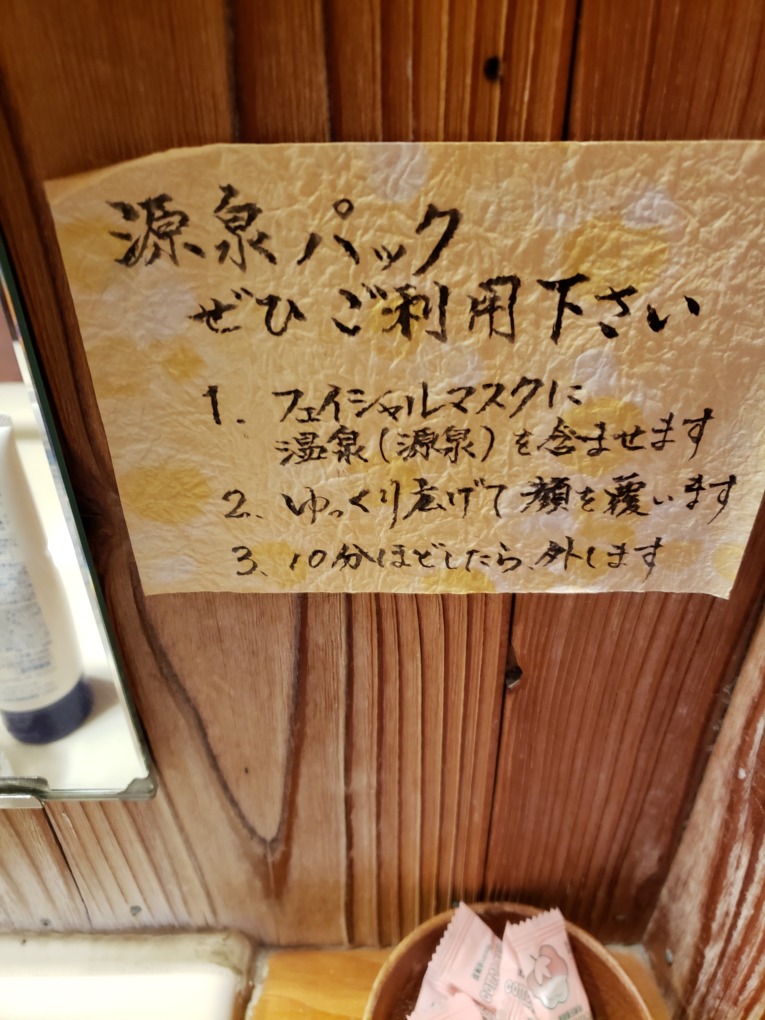 源泉パック
ぜひご利用下さい
1. フェイシャルマスクに
温泉(源泉)を含ませます
2. ゆっくり広げて顔を覆います
3. 10分ほどしたら、外します